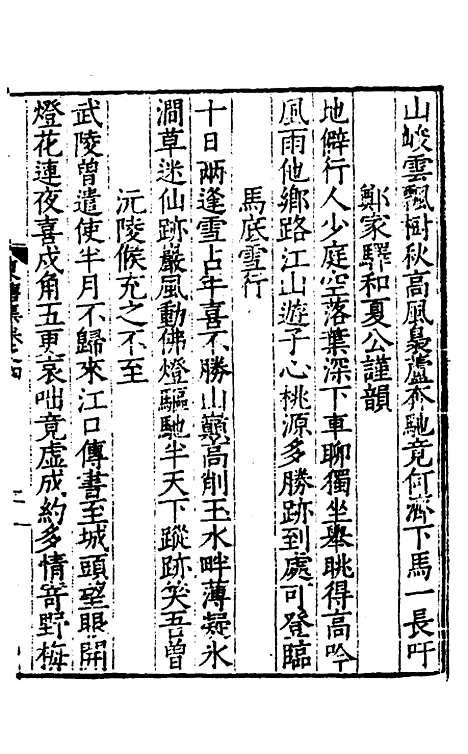 山峻雲飄樹秋高風裊蘆奔馳竟何濟下馬一長吁
鄭家驛和夏公謹韻
地僻行人少庭空落葉深下車聊獨坐舉眺得高吟
風雨他鄉路江山遊子心桃源多勝跡到處可登臨
馬底雪行
十日兩逢雪占年喜不勝山巔高削玉水畔薄凝氷
澗草迷仙跡嚴風動佛燈驅馳半天下蹤跡笑吾曾
沅陵候充之不至
武陵曾遣使半月不歸來江口傳書至城頭望眼開
燈花連夜喜戍角五更哀咄咄竟虛成約多情寄野梅
集卷之四
二